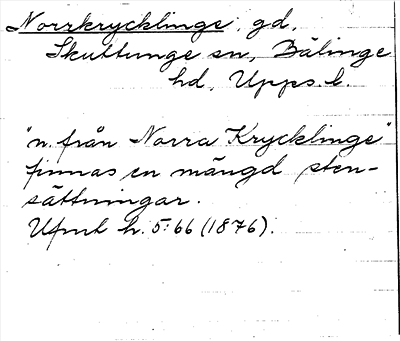 Norrkrycklinge, gd.
Skuttunge sn, Bälinge
hd, Upps. l.
"n. från Norra Krycklinge"
finnas en mängd sten-
sättningar.
Ufmt h. 5:66 (1876).